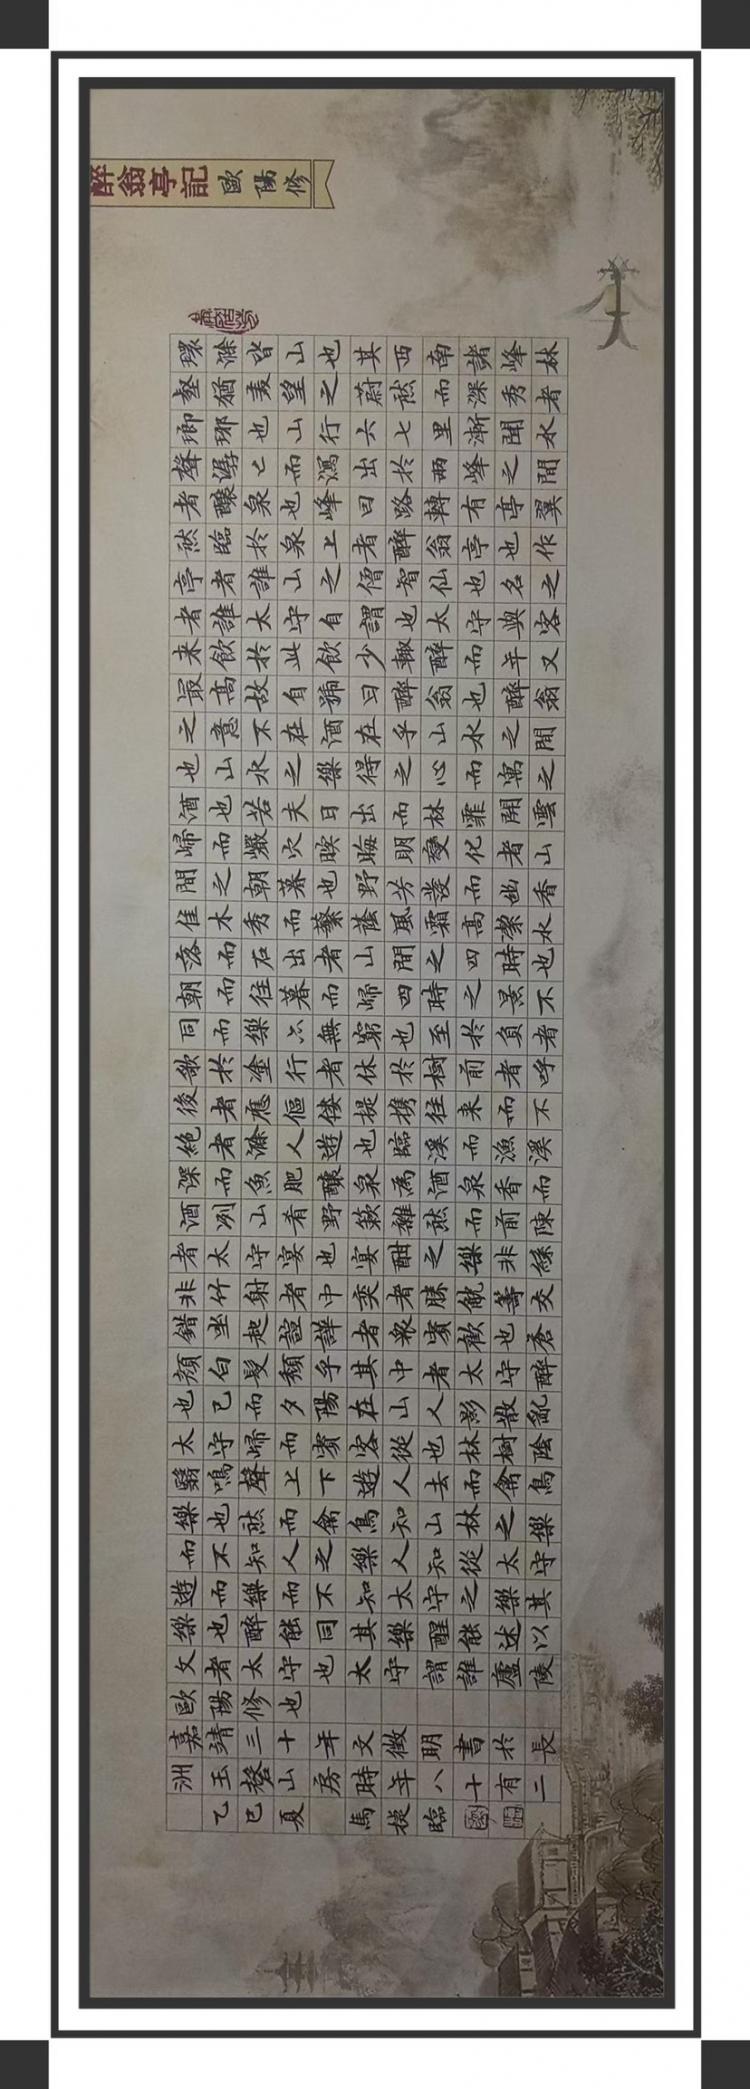 醉翁亭記 歐陽修
環滁皆山也其西南諸峰林
壑猶美望之蔚然而深秀者
瑯琊也山行六七里漸聞水
聲潺〻而瀉出於兩峰之間
者釀泉也峰回路轉有亭翼
然臨於泉上者醉翁亭也作
亭者誰山之僧智仙也名之
者誰太守自謂也太守與客
来飲於此飲少輒醉而年又
最高故自號曰醉翁也醉翁
之意不在酒在乎山水之間
也山水之樂得之心而寓之
酒也若夫日出而林霏開雲
歸而巖穴暝晦明變化者山
間之朝暮也野芳發而幽香
佳木秀而繁蔭風霜高潔水
落而石出者山間之四時也
朝而往暮而歸四時之景不
同而樂亦無窮也至於負者
歌於塗行者休於樹前者呼
後者應傴僂提攜往来而不
絕者滁人遊也臨溪而漁溪
深而魚肥釀泉為酒泉香而
酒冽山肴野蔌雜然而前陳
者太守宴也宴酣之樂非絲
非竹射者中奕者勝觥籌交
錯坐起諠譁者衆賓歡也蒼
顏白髮頹乎其中者太守醉
也已而夕陽在山人影散亂
太守歸而賓客從也林樹陰
翳鳴聲上下遊人去而禽鳥
樂也然而禽鳥知山林之樂
而不知人之樂人知從太守
遊而樂而不知太守之樂其
樂也醉能同其樂醒能述以
文者太守也太守謂誰廬陵
歐陽修也
嘉靖三十年文徵明書於長
洲玉磬山房時年八十有二
乙巳夏馬提臨